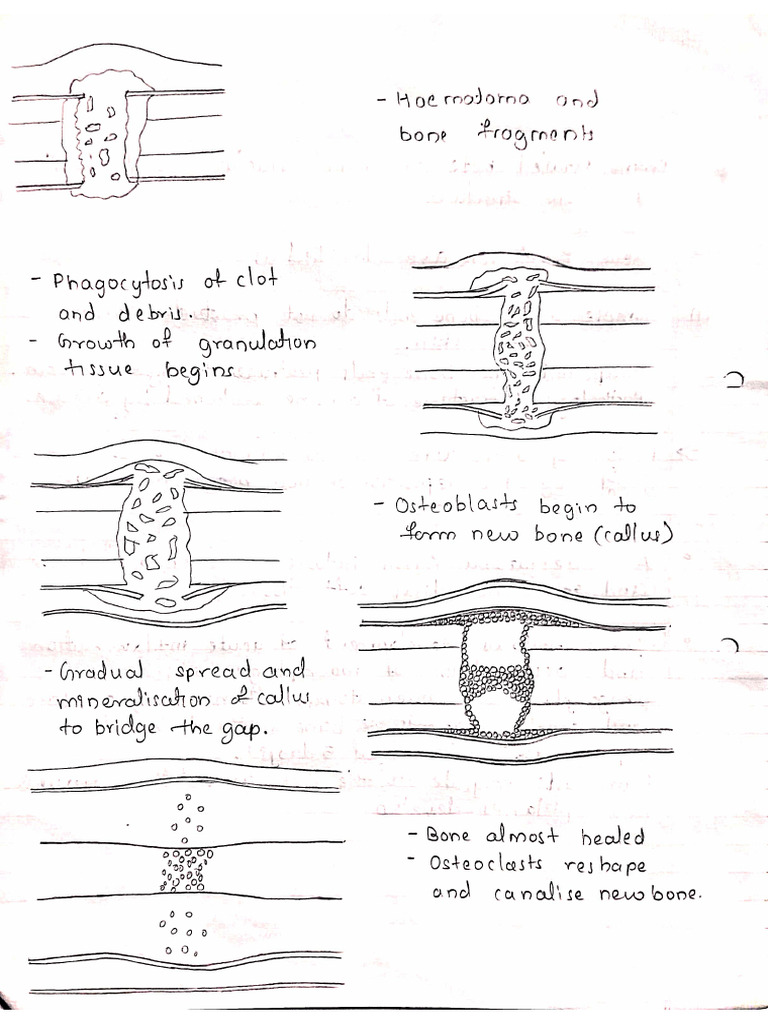 - Haematoma and
bone fragments
- Phagocytosis of clot
and debris.
- Growth of granulation
tissue begins
- Osteoblasts begin to
form new bone (callus)
- Gradual spread and
mineralisation of callus
to bridge the gap.
- Bone almost healed
- Osteoclasts reshape
and canalise new bone.